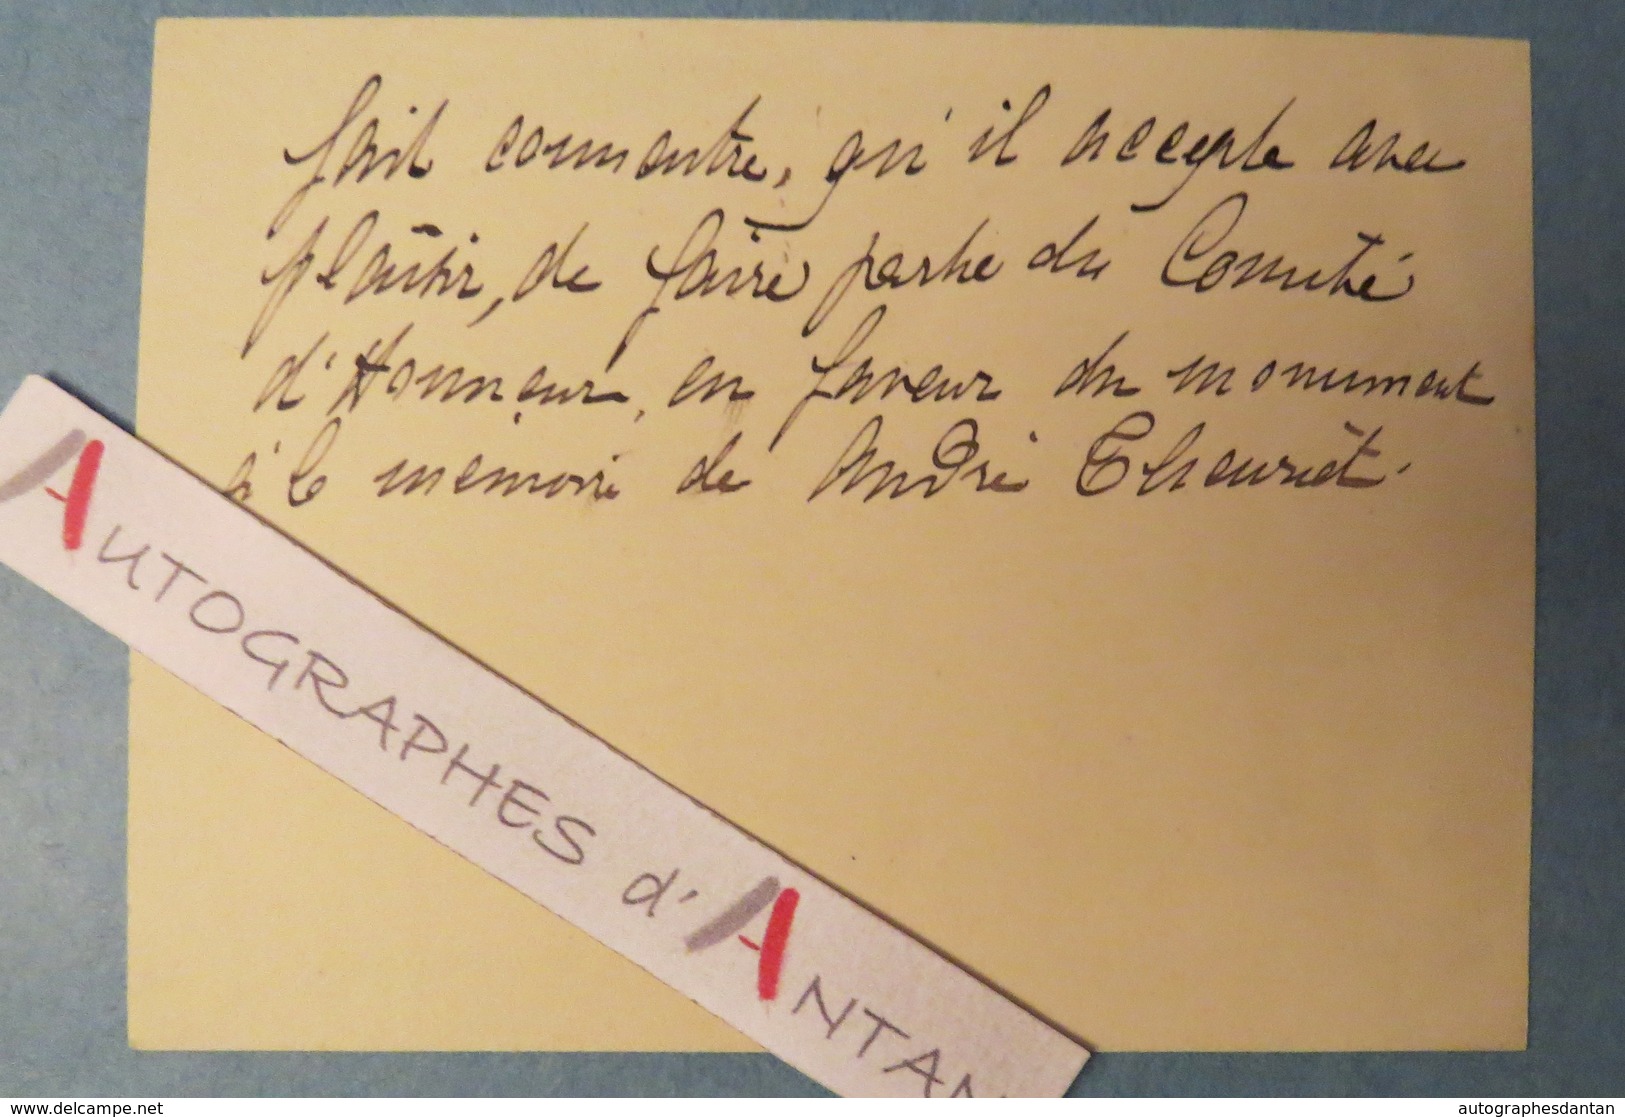 fait connaitre, qu'il accepte avec
plaisir, de faire partie du Comité
d'Honneur, en faveur du monument
à la mémoire de André Theuriet.
AUTOGRAPHES d'ANTAN
delcampe.net
autographesdantan